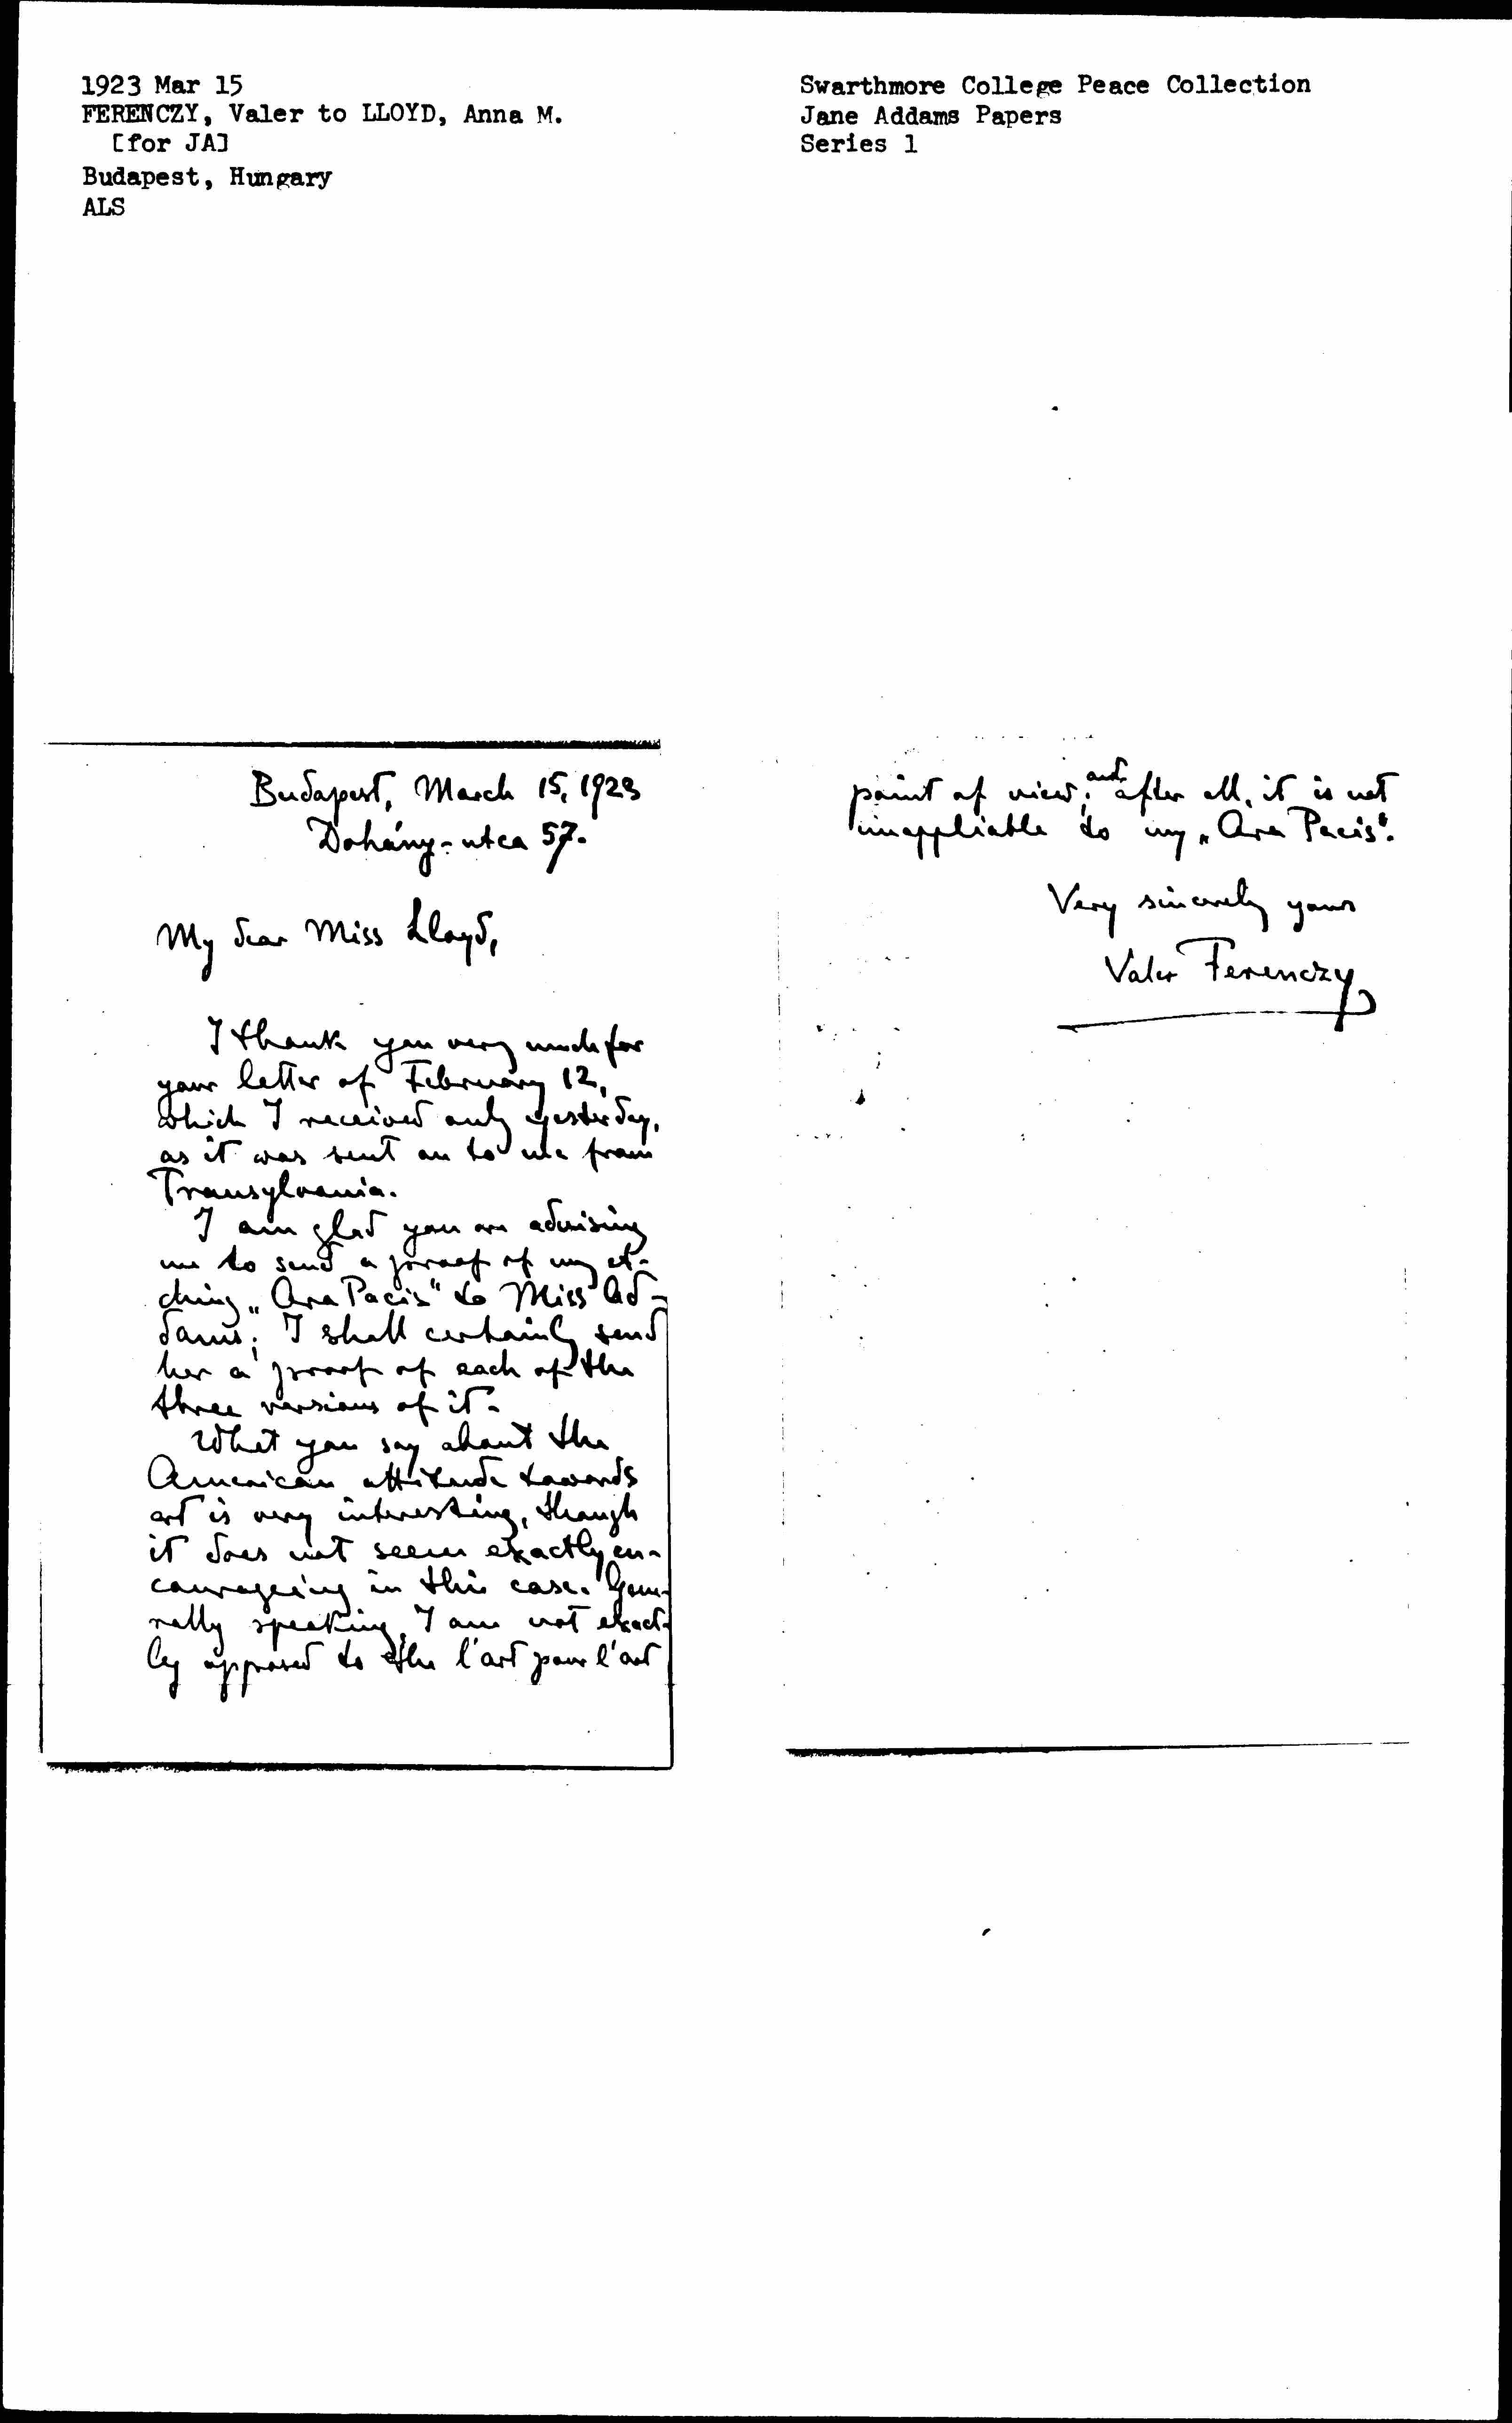 1923 Mar 15
FERENCZY, Valer to LLOYD, Anna M.
[for JA]
Budapest, Hungary
ALS
Swarthmore College Peace Collection
Jane Addams Papers
Series 1
Budapest, March 15, 1923
Dohány-utca 57.
My dear Miss Lloyd,
I thank you very much for
your letter of February 12,
which I received only yesterday,
as it was sent on to me from
Transylvania.
I am glad you are advising
me to send a proof of my et-
ching „Ara Pacis" to Miss Ad-
dams; I shall certainly send
her a proof of each of the
three versions of it.
What you say about the
American attitude towards
art is very interesting, though
it does not seem exactly en-
courageing in this case. Gene-
rally speaking, I am not exact-
ly opposed to the l'art pour l'art
point of view; and after all, it is not
inappliable to my „Ara Pacis".
Very sincerely yours
Valer Ferenczy